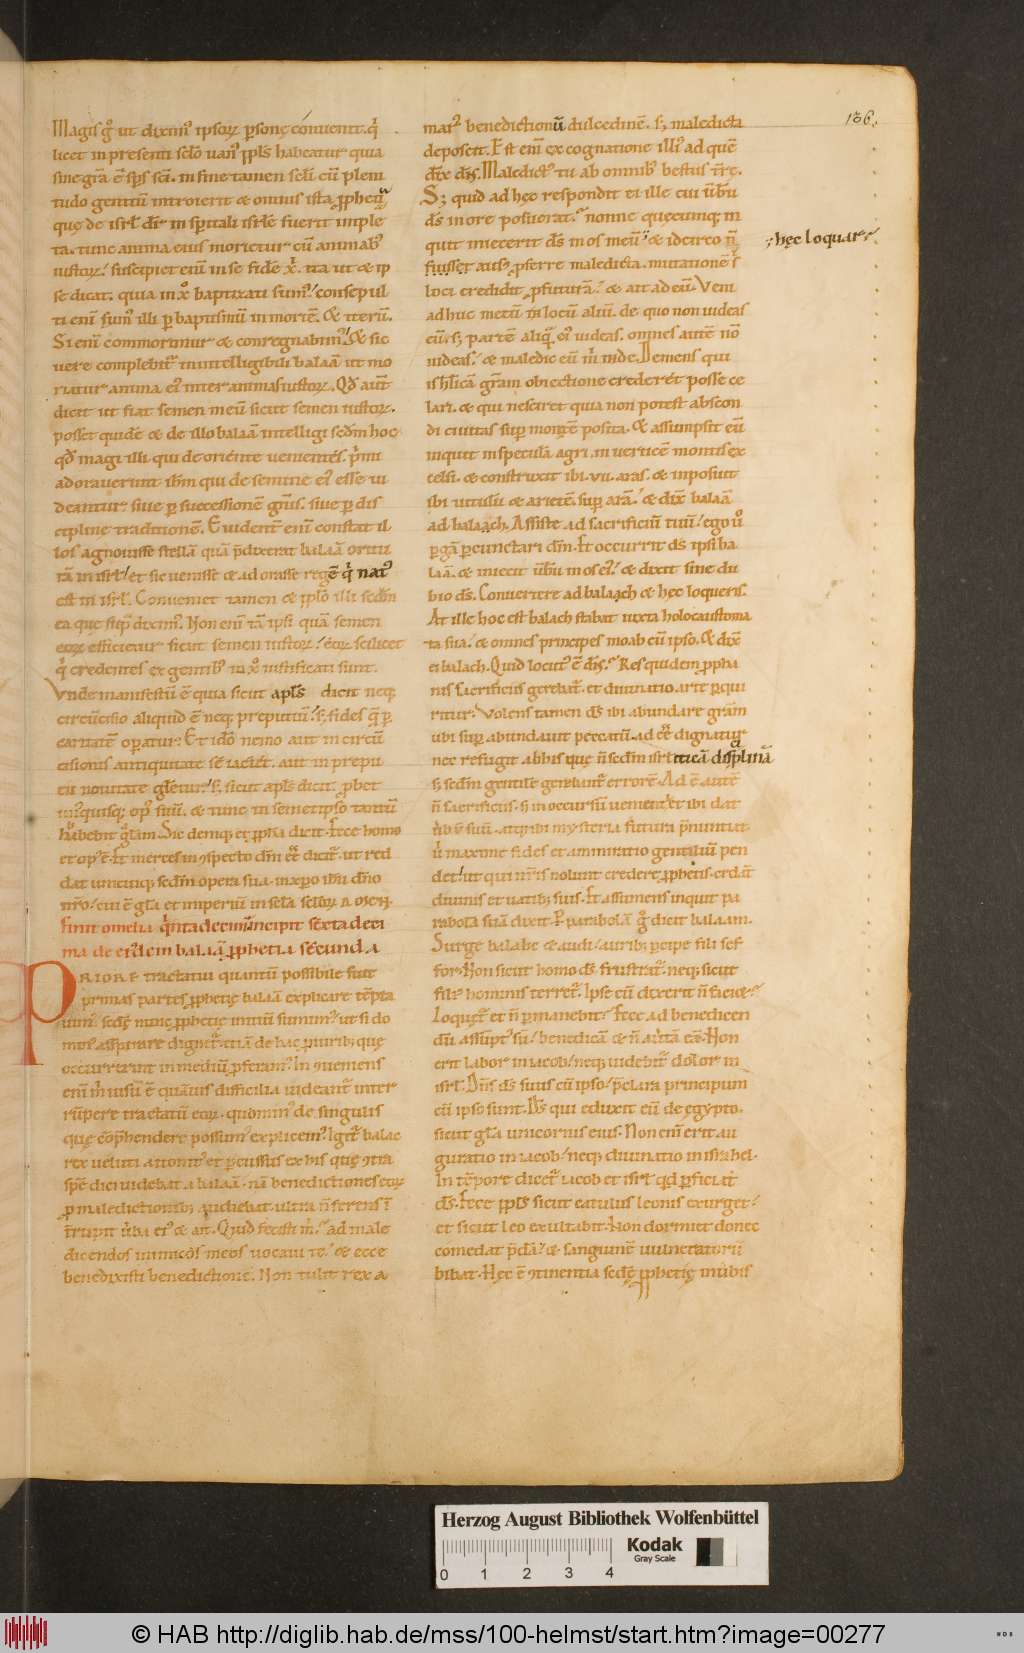 136.
Magis g̊ ut diximꝰ ipsoꝝ psonę conuenit. q̇
licet in presenti sclo uanꝰ ppls habeatur quia
sine gr̄a ē sps sci. in fine tamen scli cū pleni
tudo gentiū introierit & omnis ista pphetia
quę de isrl dicit̄ in spirtali isrle fuerit imple
ta. tunc anima eius morietur cū animabꝰ
iustoꝝ. suscipiet enī in se fidē xp̄i. ita ut & ip
se dicat. quia in xp̄o baptizati sumꝰ consepul
ti enī sumꝰ illi p baptismū in mortē. & iterū.
Si enī commorimur & conregnabimꝰ. & sic
uere complebit̄ in intelligibili balaā ut mo
riatur anima eiꝰ inter animas iustoꝝ. Qd aut̄
dicit ut fiat semen meū sicut semen iustoꝝ.
posset quidē & de illo balaā intelligi scdm hoc
qd magi illi. qui de oriente uenientes. primi
adorauerunt ihm qui de semine eiꝰ esse ui
deantur. siue p successionē gnis. siue p dis
cipline traditionē. Euidenter enī constat il
los agnouisse stellā quā p̄dixerat balaā oritu
rā in isrl. et sic uenisse & adorasse regē q̇ natꝰ
est in isrl. Conueniet tamen & ipso illi scdm
ea que sup̄ diximꝰ. Non enī tā ipsi quā semen
eoꝝ efficietur sicut semen iustoꝝ. eoꝝ scilicet
q̇ credentes ex gentibꝰ in xp̄o iustificati sunt.
Vnde manifestū ē quia sicut apls dicit neq;
circūcisio aliquid ē neq; preputiū. s; fides quę p
caritatē opatur. Et ido nemo aut in circū
cisionis antiquitate se iactet. aut in prepu
tii nouitate gletur. s; sicut apls dicit. pbet
unꝰquisq; opꝰ suū. & tunc in semetipso tantū
habebit gl̄am. Sic deniq; et ppha dicit. Ecce homo
et opꝰ ē. Et merces in ꝯspectu dni eē dicit̄. ut red
dat unicuiq; scdm opera sua. in xpo ihu dno
nr̄o. cui ē gla et imperiū in scla scloꝝ amen.
finit omelia quinta decima. Incipit sexta deci
ma de eadem balaā pphetia secunda
PRIORE tractatui quantū possibile fuit
primas partes pphetię balaā explicare tēpta
uimꝰ. scdę nunc pphetię initiū sumimꝰ. ut si do
minꝰ aspirare dignet̄. etiā de hac puribꝰ quę
occurrerint in mediū pferamꝰ. In ꝯueniens
enī m̄ uisū ē quāuis difficilia uideant̄ inter
rūpere tractatū eoꝝ. quominꝰ de singulis
quę cōp̄hendere possumꝰ explicemꝰ. Igit̄ balac
rex ueluti attonitꝰ et pcussus ex his quę ꝯtra
spē dici uidebat a balaā. nā benedictiones eoꝝ
p maledictionibꝰ audiebat. ultra n̄ ferens in
t̄rupit uerba eiꝰ & ait. Quid fecisti m̄. ad male
dicendos inimicos meos uocaui te. & ecce
benedixisti benedictione. Non tulit rex a
marꝰ benedictionū dulcedinē. s; maledicta
deposcit. Est enī ex cognatione illiꝰ ad quē
dix̄ dns. Maledictꝰ tu ab omnibꝰ bestiis tr̄e.
S; quid ad hęc respondit ei ille cui uerbū
ds in ore posuerat. nonne quęcumq; in
quit iniecerit ds in os meū & idcirco n̄
; hęc loquar
fuisset ausꝰ pferre maledicta. mutationē
loci credidit pfuturā. & ait ad eū. Veni
adhuc mecū in locū aliū. de quo non uideas
eū. s; partē aliq̄ eiꝰ uideas. omnes autē non
uideas. & maledic eū m̄ inde. Demens qui
isrl̄iticā gr̄am obiectione crederet posse ce
lari. & qui nesciret quia non potest abscon
di ciuitas sup montē posita. & assumpsit eū
inquit in speculā agri. in uerticē montis ex
celsi. & construxit ibi. vii. aras. & inposuit
ibi uitulū & arietē. sup arā. & dix̄ balaā
ad balaach. Assiste ad sacrificiū tuū. ego uo
pgā pcunctari dm̄. Et occurrit ds ipsi ba
laā. & iniecit uerbū in os eiꝰ. & dixit sine du
bio ds. Conuertere ad balaach & hęc loqueris.
At ille hoc est balach stabat iuxta holocaustoma
ta sua. & omnes principes moab cū ipso. & dix̄
ei balach. Quid locutꝰ ē dns. Res quidem ppha
nis sacrificiis gerebat̄. et diuinatio arte pqui
ritur. Volens tamen ds ibi abundare gr̄am
ubi supabundauit peccatū. adeē dignatur
nec refugit ab his que n̄ scdm isrl̄iticā disciplinā
s; scdm gentilē gerebant̄ errorē. Adē autē
n̄ sacrificiis. s; in occursū uenientet ibi dat
uerbū suū. atq; ibi mysteria futura p̄nuntiat.
ubi maxime fides et ammiratio gentiliū pen
det. ut qui nr̄is nolunt credere pphetis. credāt
diuinis et uatibꝰ suis. Et assumens inquit pa
rabolā suā dixit. Et parabolā g̊ dicit balaam.
Surge balahc & audi. auribꝰ pcipe fili sef
for. Non sicut homo ds frustrat̄. neq; sicut
filiꝰ hominis terret̄. Ipse cū dixerit n̄ faciet.
Loquet̄ et n̄ pmanebit. Ecce ad benedicen
dū assūptꝰ sū. benedicā & n̄ auertā eā. Non
erit labor in iacob. neq; uidebit̄ dolor in
isrl. Dns ds suus cū ipso. p̄clara principum
cū ipso sunt. Ds qui eduxit eū de egypto.
sicut gla unicornis eius. Non enī erit au
guratio in iacob. neq; diuinatio in israhel.
In tēpore dicet̄ iacob et isrl qd pficiat
ds. Ecce ppls sicut catulus leonis exurget.
et sicut leo exultabit. Non dormiet donec
comedat p̄dā. & sanguinē uulneratorū
bibat. Hęc ē ꝯtinentia scdę pphetię in uerbis
Herzog August Bibliothek Wolfenbüttel
Kodak
Gray Scale
0 1 2 3 4
© HAB http://diglib.hab.de/mss/100-helmst/start.htm?image=00277